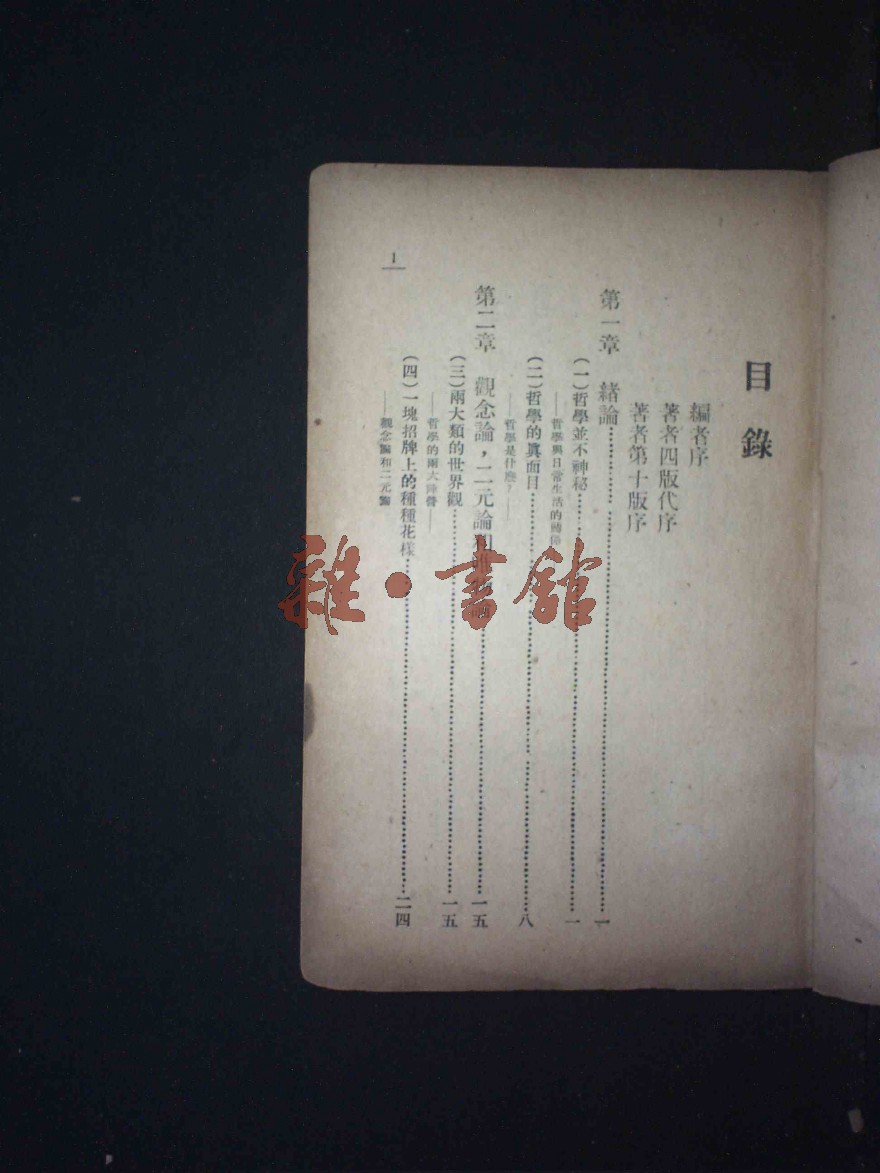 目錄
編者序
著者四版代序
著者第十版序
第一章 緒論……一
(一)哲學並不神秘……一
——哲學與日常生活的
(二)哲學的眞面目……八
——哲學是什麼?——
第二章 觀念論,二元論和……一五
(三)兩大類的世界觀……一五
——哲學的兩大陣營——
(四)一塊招牌上的種種花樣……二四
——觀念論和二元論
1
雜·書館